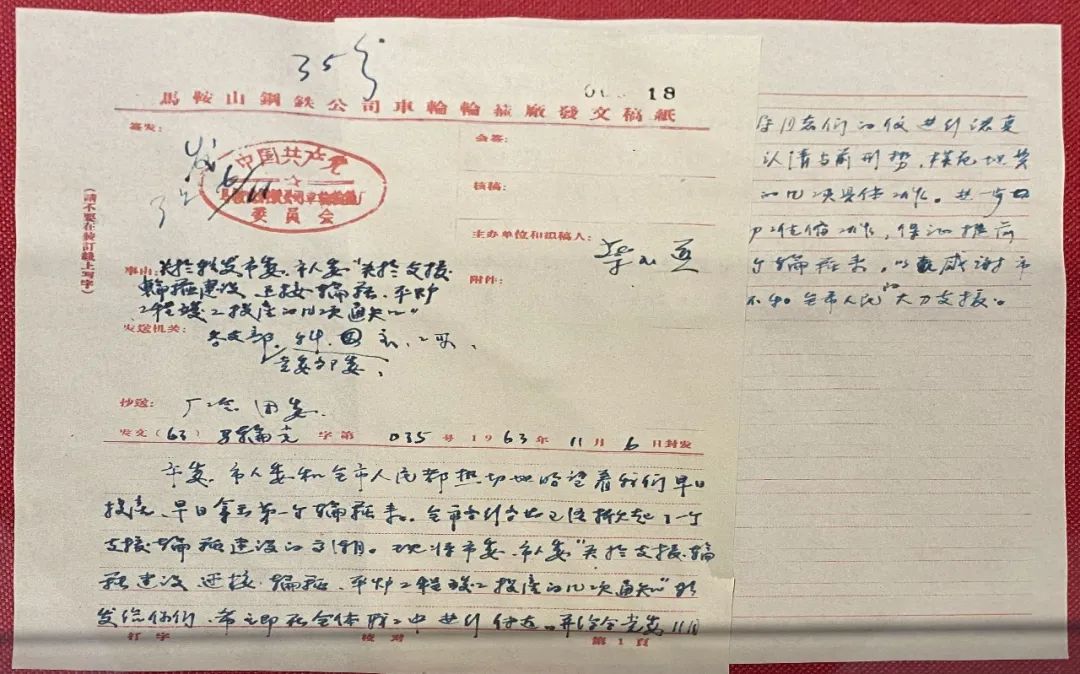 35号
18
馬鞍山鋼鉄公司車輪輪箍廠發文稿紙
签发:
会簽:
发
6/11
中国共产党
委員会
核稿:
主办单位和拟稿人:
(請不要在装訂綫上写字)
事由: 关於转发市委、市人委“关於支援
輪箍建设、迎接輪箍、平炉
工程竣工投产的几项通知”
附件:
发送机关:
各支部、科、团委、工会、
党委各部委、
抄送:
厂 团委.
发文(63) 字第 035 号 1963年 11月 6日封发
市委、市人委和全市人民都热切地盼望着我们早日
投产、早日拿出第一个輪箍来。全市各行各业已经掀起了一个
支援輪箍建设的高潮。现将市委、市人委“关於支援輪
箍建设、迎接輪箍、平炉工程竣工投产的几项通知”转
发给你们、希立即在全体职工中进行传达。并结合党委11月
打字 校对 第1頁
进行认真
认清当前形势,
的几项具体工作。进一步
工作,保证提前
个輪箍来,以感谢市
全市人民的大力支援。